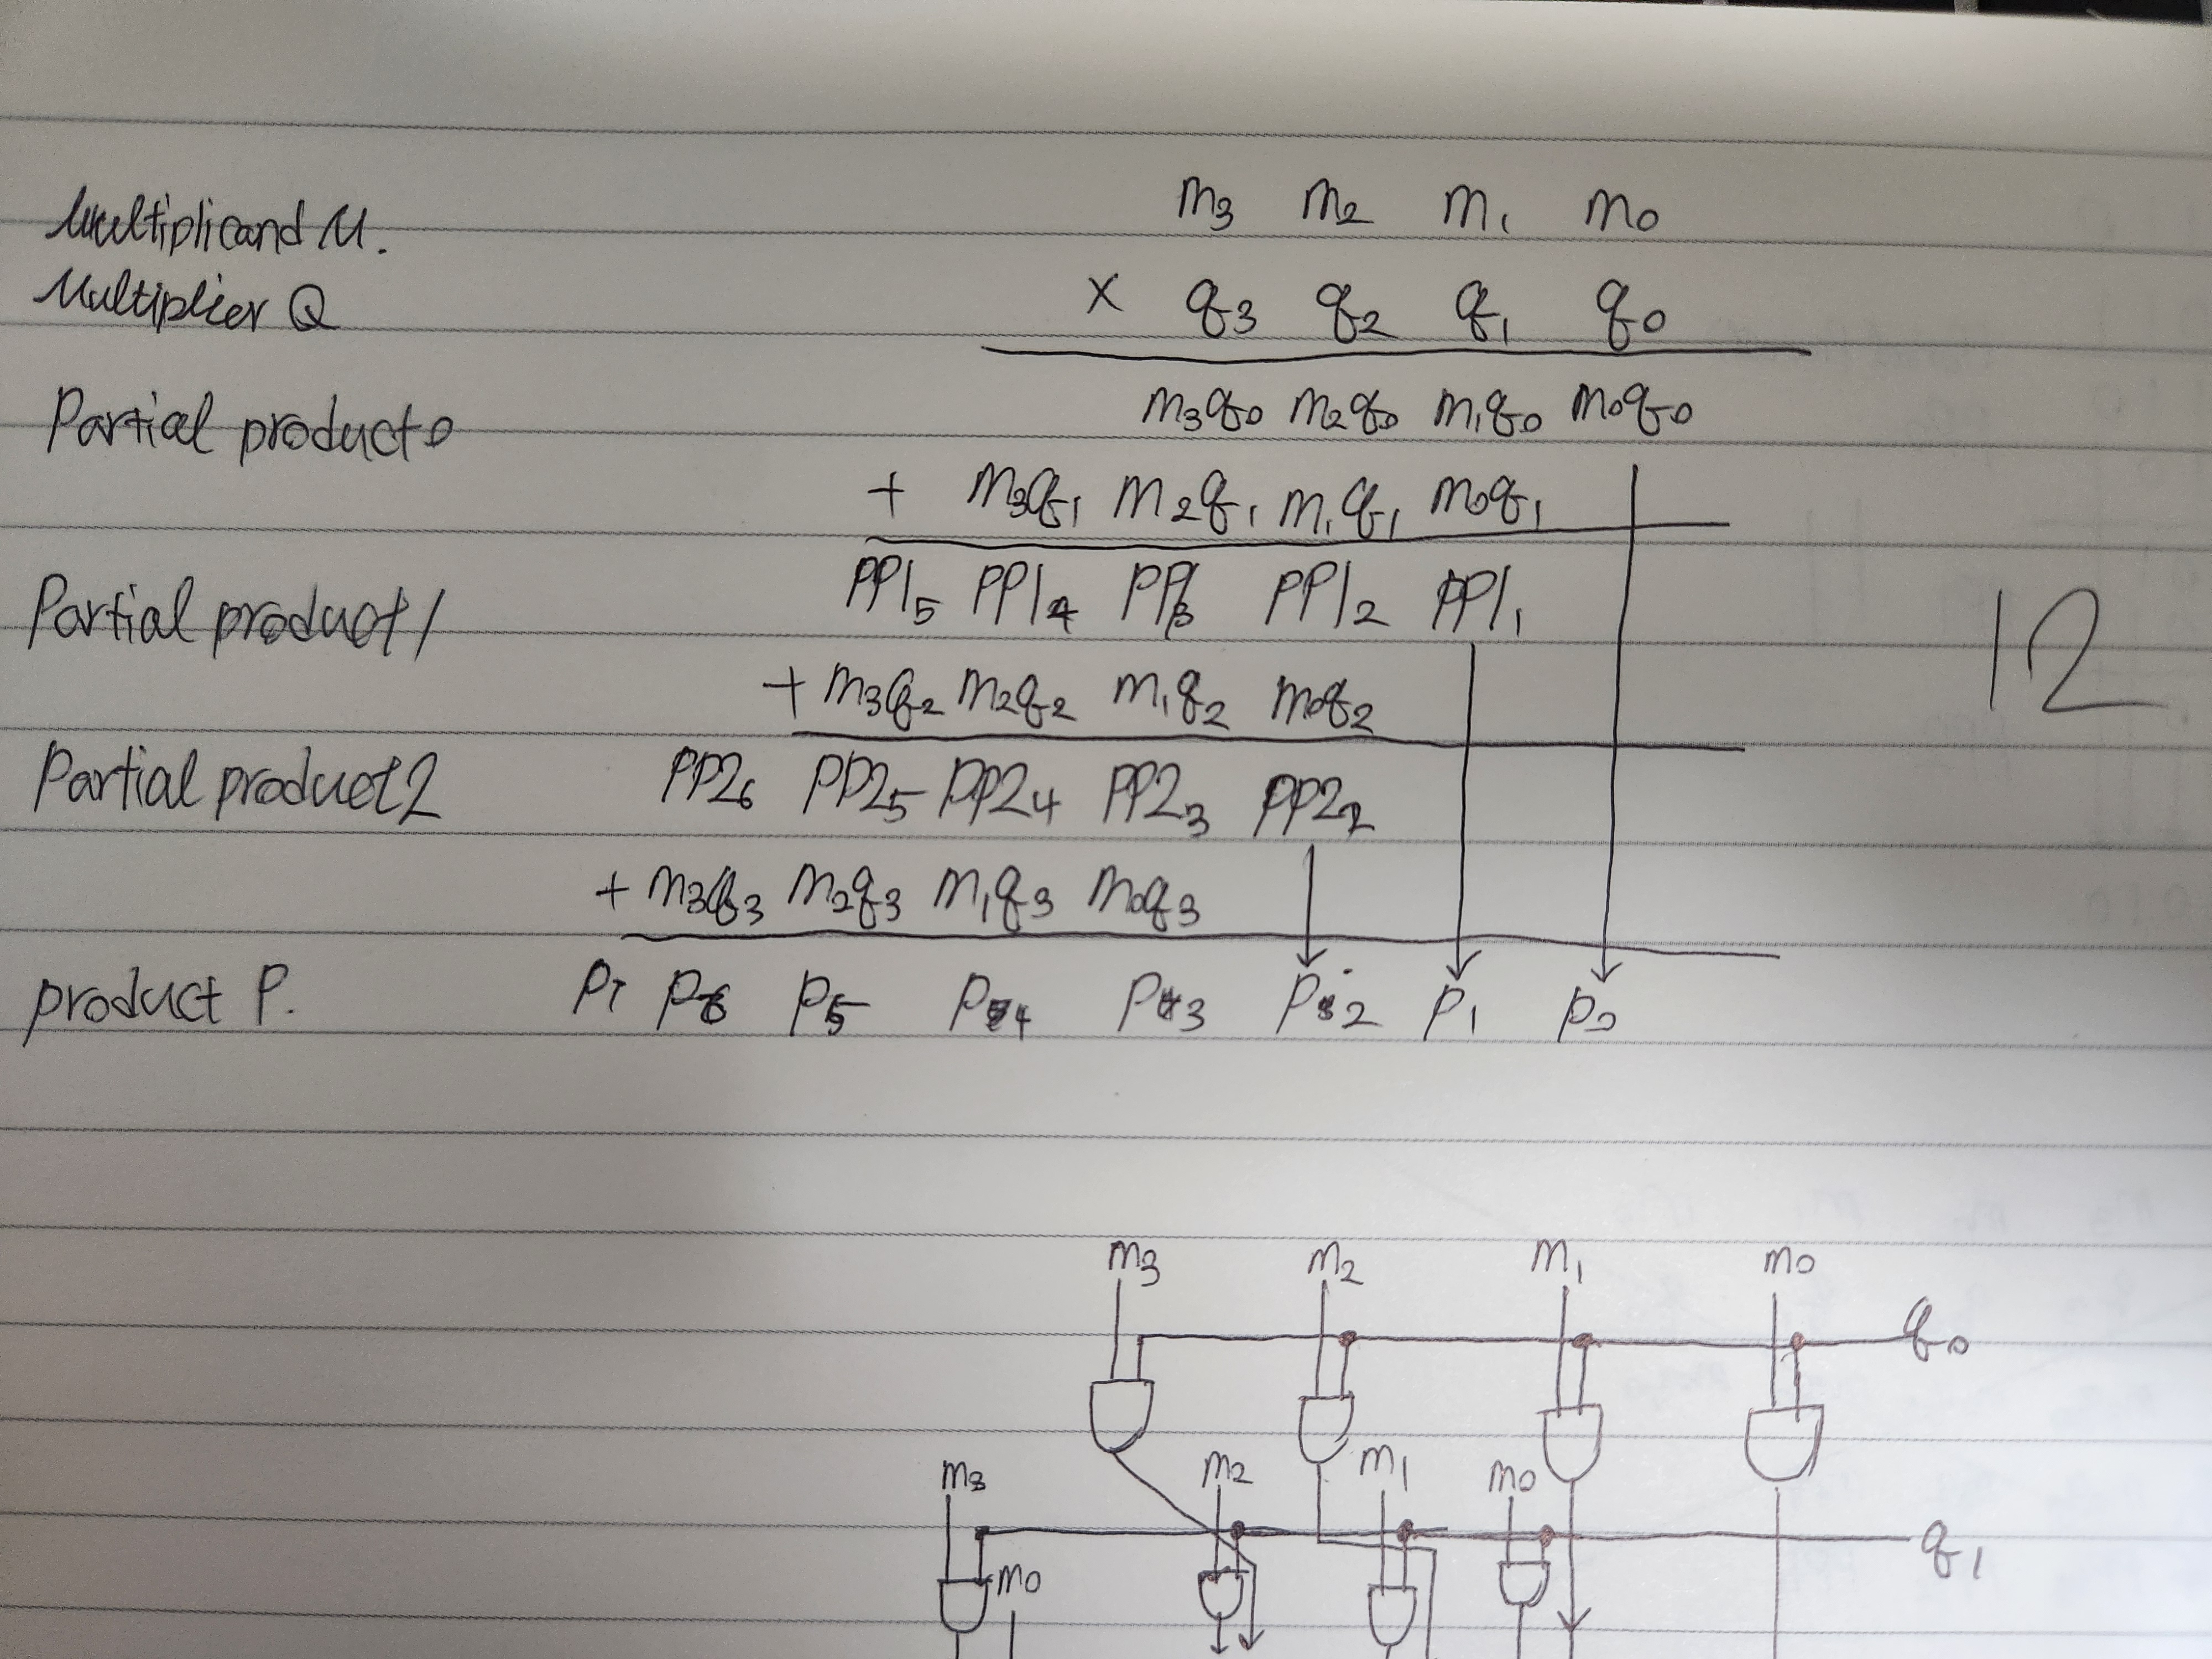 m3 m2 m1 m0
Multiplicand M.
Multiplier Q × q3 q2 q1 q0
Partial product0 m3q0 m2q0 m1q0 m0q0
+ m3q1 m2q1 m1q1 m0q1
Partial product1 PP15 PP14 PP13 PP12 PP11
12
+ m3q2 m2q2 m1q2 m0q2
Partial product2 PP26 PP25 PP24 PP23 PP22
+ m3q3 m2q3 m1q3 m0q3
product P. P7 P6 P5 P4 P3 P2 P1 P0
m3 m2 m1 m0
q0
m3 m2 m1 m0
q1
m0